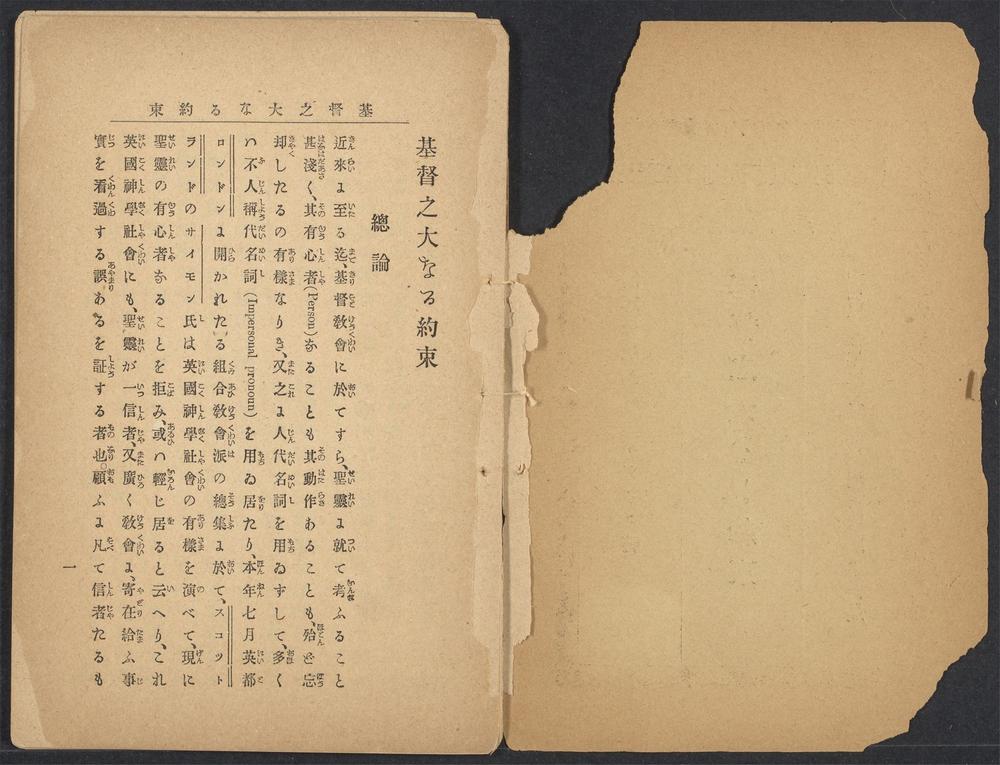 基督之大なる約束
基督之大なる約束
總論
近來ょ至る迄、基督敎會に於てすら、聖靈ょ就て考ふること
甚淺く、其有心者(Person)なることも其動作あることも、殆ど忘
却したるの有樣なりき、又之ょ人代名詞を用ゐずして、多く
ハ不人稱代名詞(Impersonal pronoun)を用ゐ居たり、本年七月英都
ロンドンょ開かれたる組合敎會派の總集ょ於て、スコット
ランドのサイモン氏は英國神學社會の有樣を演べて、現に
聖靈の有心者なることを拒み、或ハ輕じ居ると云へり、これ
英國神學社會にも、聖靈が一信者、又廣く敎會ょ、寄在給ふ事
實を看過する誤あるを証する者也。顧ふょ凡て信者たるも
一